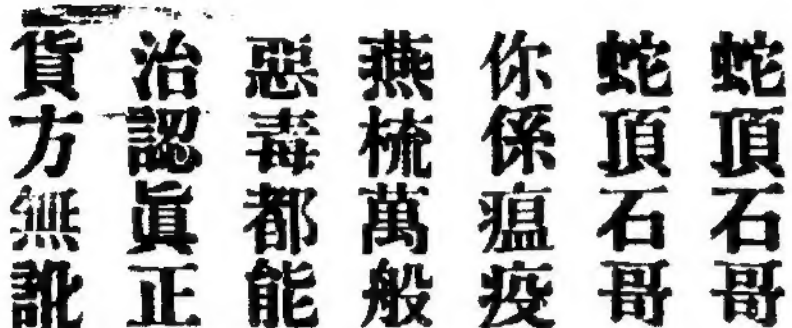 蛇頂石哥
蛇頂石哥
你係瘟疫
燕梳萬般
惡毒都能
治認眞正
貨方無訛